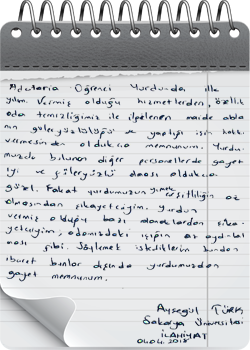 Öğrenci Yurdunda ilk
yılım. Vermiş olduğu hizmetlerden, özellikle
oda temizliğimiz ile ilgilenen abla
nın güleryüzlülüğü ve yaptığı işin hakkı
vermesinden oldukça memnunum. Yurdu-
muzda bulunan diğer personellerde gayet
iyi ve güleryüzlü olması oldukça
güzel. Fakat yurdumuzun yemek çeşitliliğin az
olmasından şikayetçiyim. Yurdun
vermiş olduğu bazı şika-
yetçiyim; odamızdaki ışığın az aydınlat
ması gibi. Söylemek istediklerim bundan
ibaret bunlar dışında yurdumuzdan
gayet memnunum.
Ayşegül TÜRK
Sakarya Üniversitesi
İLAHİYAT
04.04.2018